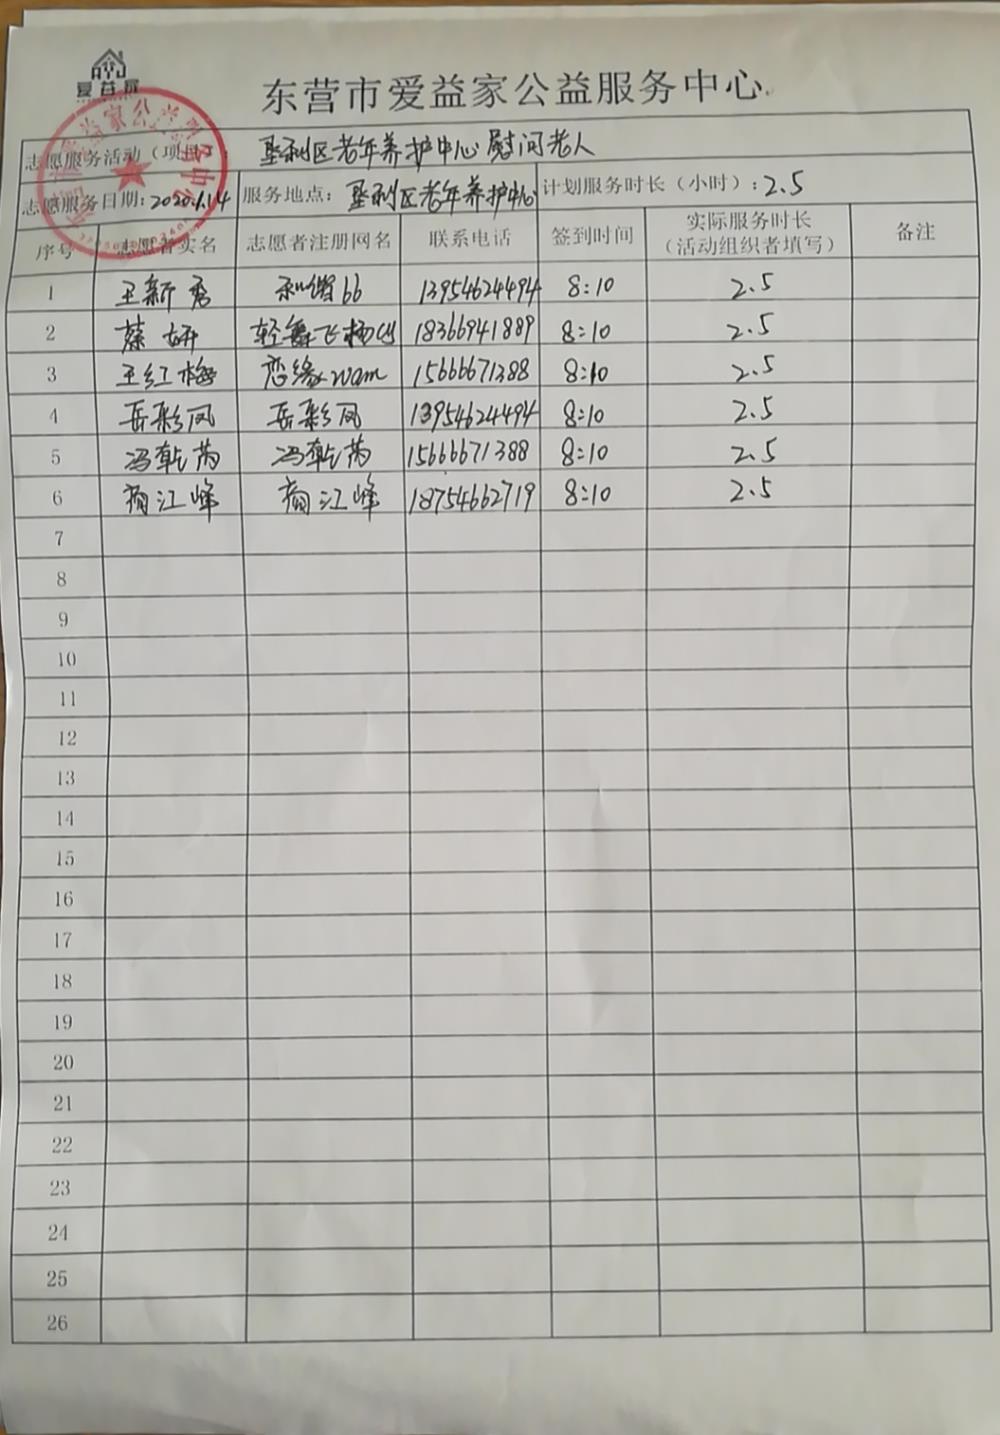 AYJ
爱益家
东营市爱益家公益服务中心
志愿服务活动（项目）：垦利区老年养护中心慰问老人
志愿服务日期：2020.1.14 服务地点：垦利区老年养护中心 计划服务时长（小时）：2.5
序号 志愿者实名 志愿者注册网名 联系电话 签到时间 实际服务时长（活动组织者填写） 备注
1 王新秀 66 13954624494 8:10 2.5
2 蔡妍 轻舞飞扬 18366941889 8:10 2.5
3 王红梅 恋缘wam 15666671388 8:10 2.5
4 岳彩凤 岳彩凤 13954624494 8:10 2.5
5 冯乾芮 冯乾芮 15666671388 8:10 2.5
6 江峰 江峰 18754662719 8:10 2.5
7
8
9
10
11
12
13
14
15
16
17
18
19
20
21
22
23
24
25
26